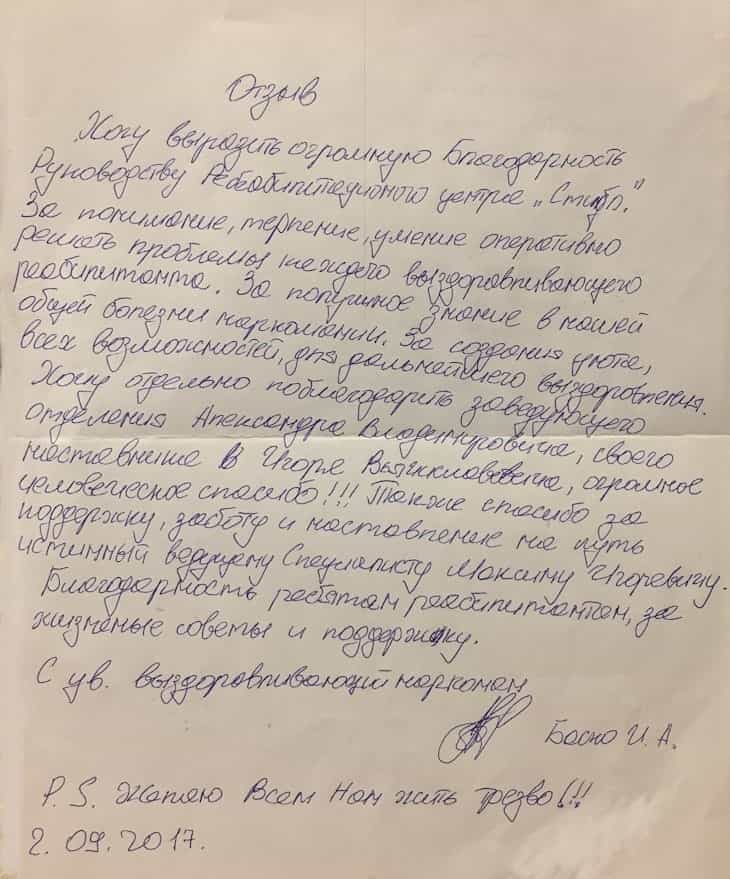 Отзыв
Хочу выразить огромную Благодарность
Руководству Реабилитационного центра „Стибл."
За понимание, терпение, умение оперативно
решать проблемы каждого выздоравливающего
реабилитанта. За полушное знание в нашей
общей болезни наркомании. За создания уюта,
всех возможностей, для дальнейшего выздоровления.
Хочу отдельно поблагодарить заведующего
отделения Александра Владимировича, своего
наставника В Игоря Вячеславовича, огромное
человеческое спасибо!!! Также спасибо за
поддержку, заботу и наставление на путь
истинный ведущему Специалисту Максиму Игоревичу.
Благодарность ребятам реабилитантам, за
жизненые советы и поддержку.
С ув. выздоравливающий наркоман
Баско И. А.
P. S. Желаю Всем Нам жить трезво!!!
2. 09. 2017.